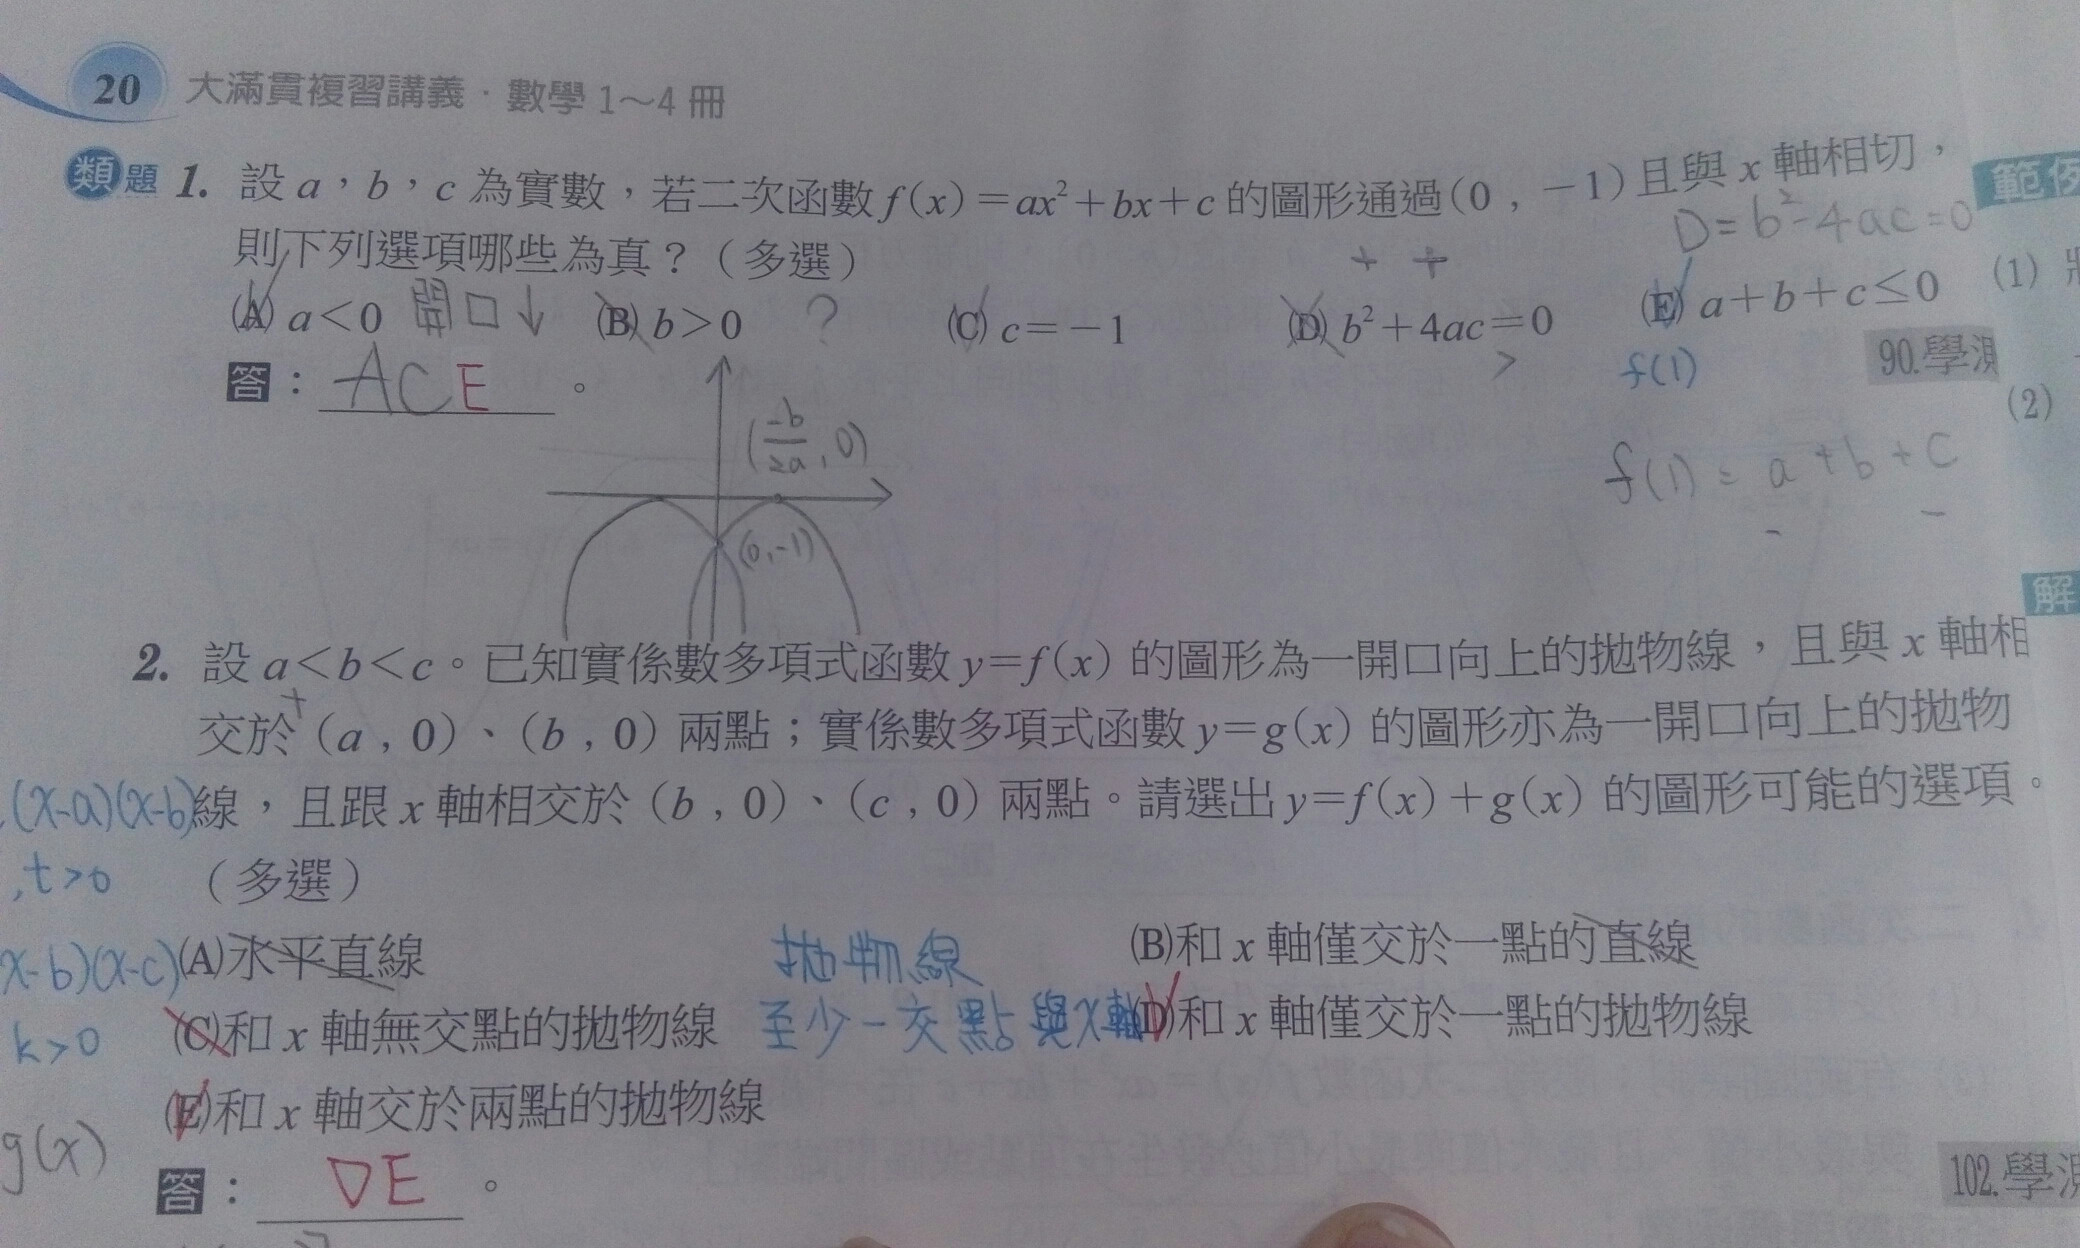 20 大滿貫複習講義・數學 1～4 冊
類題 1. 設 a，b，c 為實數，若二次函數 f(x)＝ax²＋bx＋c 的圖形通過(0，－1)且與 x 軸相切，
範例
D=b²-4ac=0
則下列選項哪些為真？（多選）
+ +
(1)
(A) a＜0 開口↓ (B) b＞0 ? (C) c＝－1 (D) b²＋4ac＝0 (E) a＋b＋c≤0
> f(1)
90.學測
答： ACE 。
(2)
(-b/2a, 0)
f(1) = a + b + c
- -
(0,-1)
解
2. 設 a＜b＜c。已知實係數多項式函數 y＝f(x) 的圖形為一開口向上的拋物線，且與 x 軸相
+
交於（a，0）、（b，0）兩點；實係數多項式函數 y＝g(x) 的圖形亦為一開口向上的拋物
(x-a)(x-b)
線，且跟 x 軸相交於（b，0）、（c，0）兩點。請選出 y＝f(x)＋g(x) 的圖形可能的選項。
,t>0
（多選）
x-b)(x-c)
(A)水平直線 (B)和 x 軸僅交於一點的直線
拋物線
至少一交點與x軸
k>0
(C)和 x 軸無交點的拋物線 (D)和 x 軸僅交於一點的拋物線
(E)和 x 軸交於兩點的拋物線
g(x)
答： DE 。
102.學測